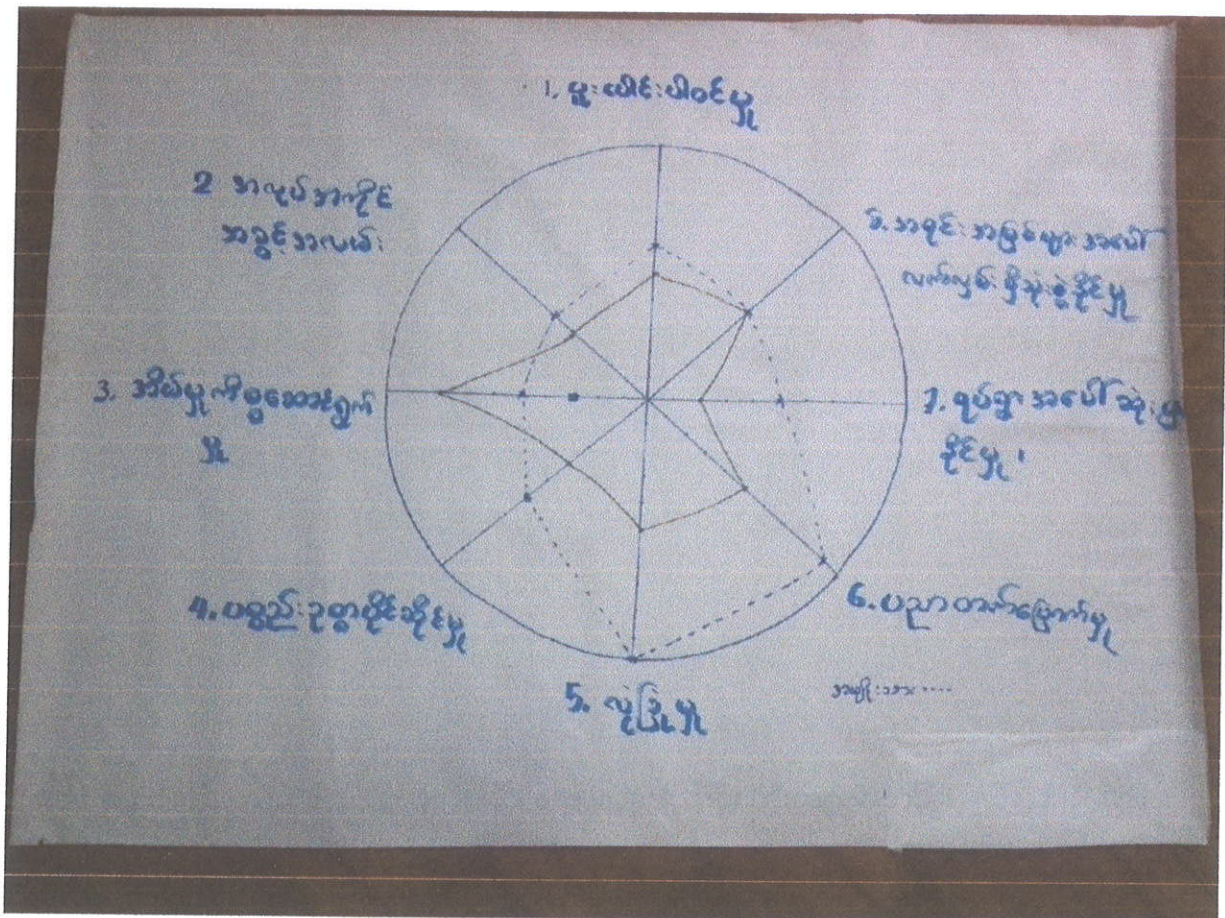 1. ပူးပေါင်းပါဝင်မှု
2 အလုပ်အကိုင်
အခွင့်အလမ်း
3. အိမ်မှုကိစ္စဆောင်ရွက်
မှု
4. ပစ္စည်းဥစ္စာပိုင်ဆိုင်မှု
5. လုံခြုံမှု
6. ပညာတတ်မြောက်မှု
7. ရပ်ရွာအပေါ်ဆုံးဖြ
နိုင်မှု
အရင်းအမြစ်များအပေါ်
လက်လှမ်းမှီသုံးစွဲနိုင်မှု
အမျိုးသား